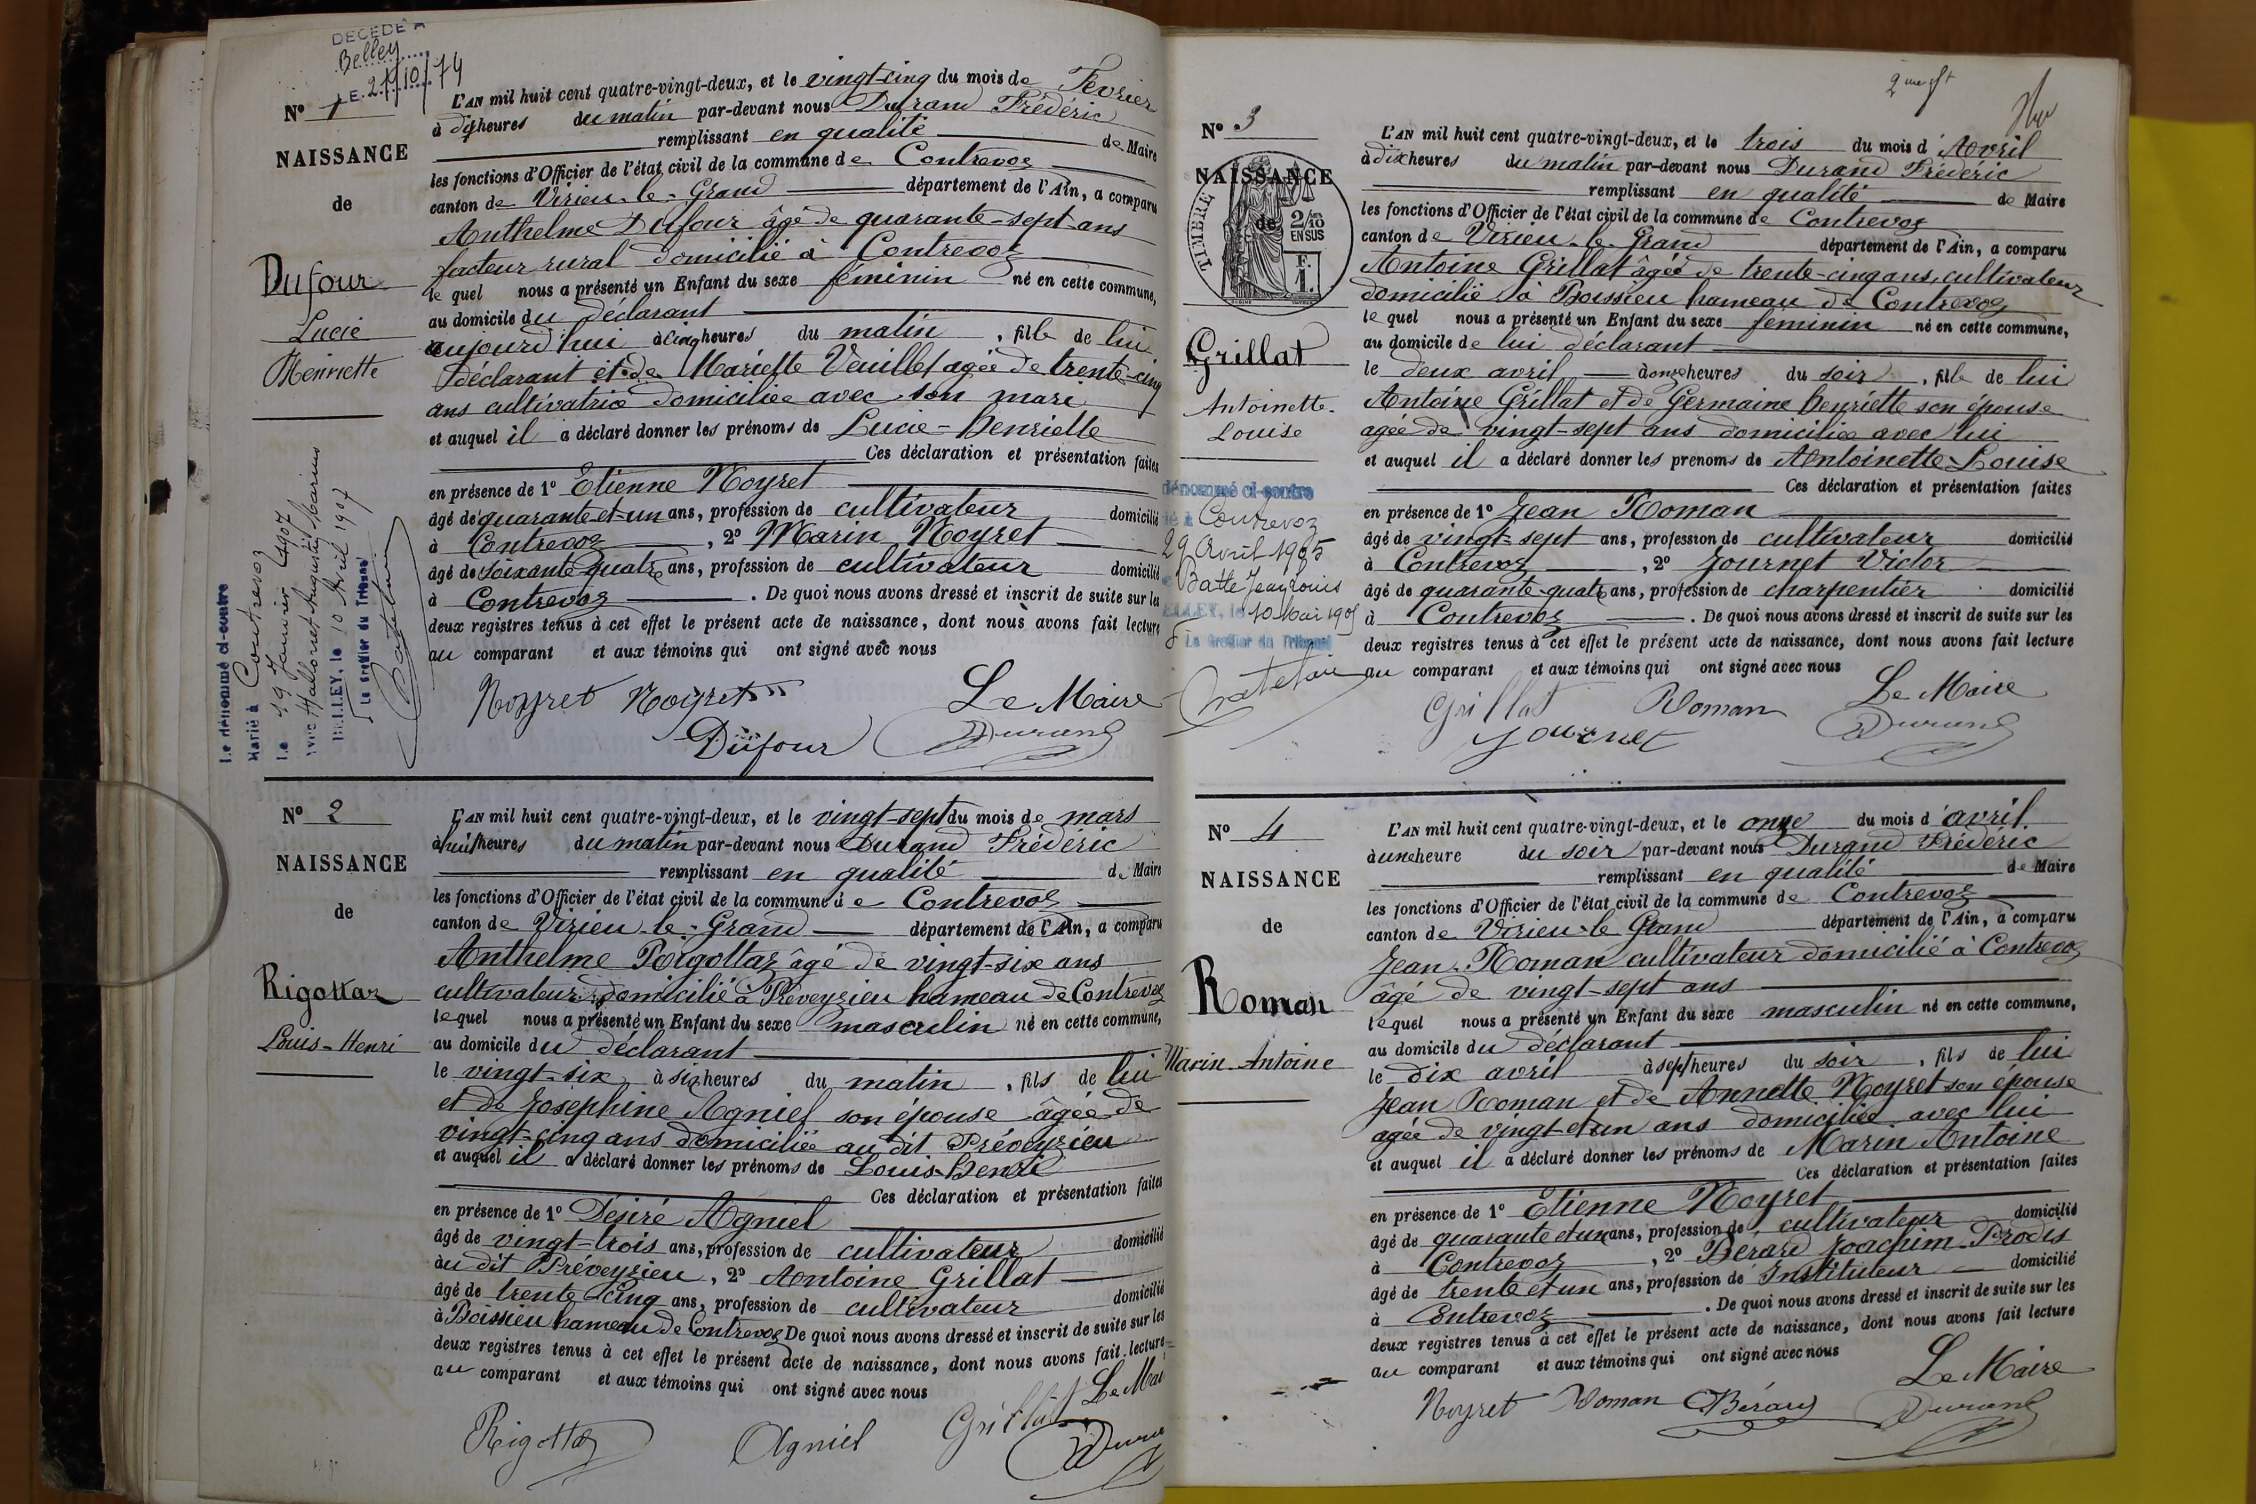 DÉCÉDÉ A
Belley
LE 27/10/74
N° 1
NAISSANCE
de
Dufour
Lucie
Henriette
Le dénommé ci-contre
Marié à Contrevoz
Le 19 Janvier 1907
avec Hallonet Augustin Marius
BELLEY, le 10 Avril 1907
Le Greffier du Tribunal
L'AN mil huit cent quatre-vingt-deux, et le vingt-cinq du mois de Février
à dix heures du matin par-devant nous Durand Frédéric
remplissant en qualité de Maire
les fonctions d'Officier de l'état civil de la commune de Contrevoz
canton de Virieu-le-Grand département de l'Ain, a comparu
Anthelme Dufour âgé de quarante-sept ans
facteur rural domicilié à Contrevoz
le quel nous a présenté un Enfant du sexe féminin né en cette commune,
au domicile du déclarant
aujourd'hui à cinq heures du matin, fille de lui
déclarant et de Mariette Veuillet agée de trente-cinq
ans cultivatrice domiciliée avec son mari
et auquel il a déclaré donner les prénoms de Lucie-Henriette
Ces déclaration et présentation faites
en présence de 1° Etienne Noyret
âgé de quarante-et-un ans, profession de cultivateur domicilié
à Contrevoz, 2° Marin Noyret
âgé de soixante quatre ans, profession de cultivateur domicilié
à Contrevoz. De quoi nous avons dressé et inscrit de suite sur les
deux registres tenus à cet effet le présent acte de naissance, dont nous avons fait lecture
au comparant et aux témoins qui ont signé avec nous
Noyret Noyret Le Maire
Dufour Durand
N° 2
NAISSANCE
de
Rigottaz
Louis-Henri
L'AN mil huit cent quatre-vingt-deux, et le vingt-sept du mois de mars
à huit heures du matin par-devant nous Durand Frédéric
remplissant en qualité de Maire
les fonctions d'Officier de l'état civil de la commune de Contrevoz
canton de Virieu-le-Grand département de l'Ain, a comparu
Anthelme Rigottaz âgé de vingt-six ans
cultivateur domicilié à Préveyrieu hameau de Contrevoz
le quel nous a présenté un Enfant du sexe masculin né en cette commune,
au domicile du déclarant
le vingt-six à six heures du matin, fils de lui
et de Joséphine Agniel son épouse âgée de
vingt-cinq ans domiciliée au dit Préveyrieu
et auquel il a déclaré donner les prénoms de Louis-Henri
Ces déclaration et présentation faites
en présence de 1° Désiré Agniel
âgé de vingt-trois ans, profession de cultivateur domicilié
au dit Préveyrieu, 2° Antoine Grillat
âgé de trente cinq ans, profession de cultivateur domicilié
à Boissieu hameau de Contrevoz De quoi nous avons dressé et inscrit de suite sur les
deux registres tenus à cet effet le présent acte de naissance, dont nous avons fait lecture
au comparant et aux témoins qui ont signé avec nous
Le Mai
Rigottaz Agniel Grillat
2me
N° 3
NAISSANCE
de
TIMBRE
2/10
EN SUS
F.
1.
Grillat
Antoinette-
Louise
dénommé ci-contre
à Contrevoz
29 Avril 1905
Batte Jean Louis
BELLEY, le 10 Mai 1905
Le Greffier du Tribunal
L'AN mil huit cent quatre-vingt-deux, et le trois du mois d'Avril
à dix heures du matin par-devant nous Durand Frédéric
remplissant en qualité de Maire
les fonctions d'Officier de l'état civil de la commune de Contrevoz
canton de Virieu-le-Grand département de l'Ain, a comparu
Antoine Grillat âgé de trente-cinq ans, cultivateur
domicilié à Boissieu hameau de Contrevoz
le quel nous a présenté un Enfant du sexe féminin né en cette commune,
au domicile de lui déclarant
le deux avril à onze heures du soir, fille de lui
Antoine Grillat et de Germaine henriette son épouse
agée de vingt-sept ans domiciliée avec lui
et auquel il a déclaré donner les prenoms de Antoinette-Louise
Ces déclaration et présentation faites
en présence de 1° Jean Roman
âgé de vingt-sept ans, profession de cultivateur domicilié
à Contrevoz, 2° Journet Victor
âgé de quarante-quatre ans, profession de charpentier domicilié
à Contrevoz. De quoi nous avons dressé et inscrit de suite sur les
deux registres tenus à cet effet le présent acte de naissance, dont nous avons fait lecture
au comparant et aux témoins qui ont signé avec nous
Grillat Roman Le Maire
Journet Durand
N° 4
NAISSANCE
de
Roman
Marin-Antoine
L'AN mil huit cent quatre-vingt-deux, et le onze du mois d'avril
à une heure du soir par-devant nous Durand Frédéric
remplissant en qualité de Maire
les fonctions d'Officier de l'état civil de la commune de Contrevoz
canton de Virieu-le Grand département de l'Ain, a comparu
Jean Roman cultivateur domicilié à Contrevoz
âgé de vingt-sept ans
le quel nous a présenté un Enfant du sexe masculin né en cette commune,
au domicile du déclarant
le dix avril à sept heures du soir, fils de lui
Jean Roman et de Annette Noyret son épouse
agée de vingt-et-un ans domiciliée avec lui
et auquel il a déclaré donner les prénoms de Marin Antoine
Ces déclaration et présentation faites
en présence de 1° Etienne Noyret
âgé de quarante et un ans, profession de cultivateur domicilié
à Contrevoz, 2° Bérard Joachim-Prodis
âgé de trente et un ans, profession de Instituteur domicilié
à Contrevoz. De quoi nous avons dressé et inscrit de suite sur les
deux registres tenus à cet effet le présent acte de naissance, dont nous avons fait lecture
au comparant et aux témoins qui ont signé avec nous
Le Maire
Noyret Roman Bérard Durand